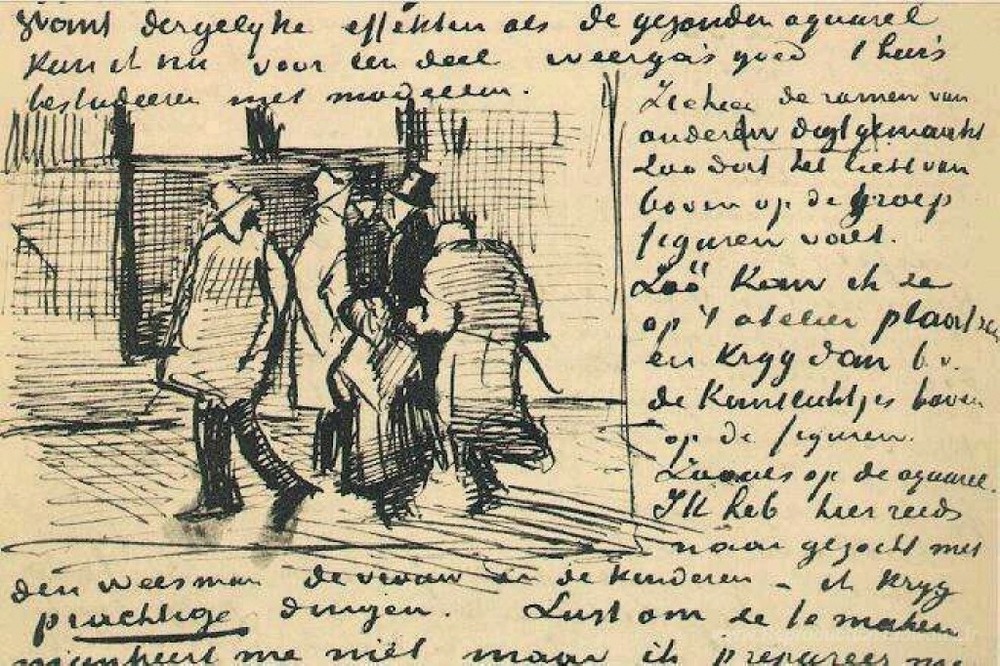 want dergelyke effekten als de gezonden aquarel
kan ik nu voor een deel weergaas goed t huis
bestudeeren met modellen.
Ziehier de ramen van
onderen digt gemaakt
Zoo dat het licht van
boven op de groep
figuren valt.
Zóó kan ik ze
op 't atelier plaatsen
en kryg dan b.v.
de kantlichtjes boven
op de figuren.
Zooals op de aquarel.
Ik heb hier reeds
naar gezocht met
den weesman de vrouw en de kinderen - ik kryg
prachtige dingen. Lust om ze te maken
mankeert me niet maar ik prepareer